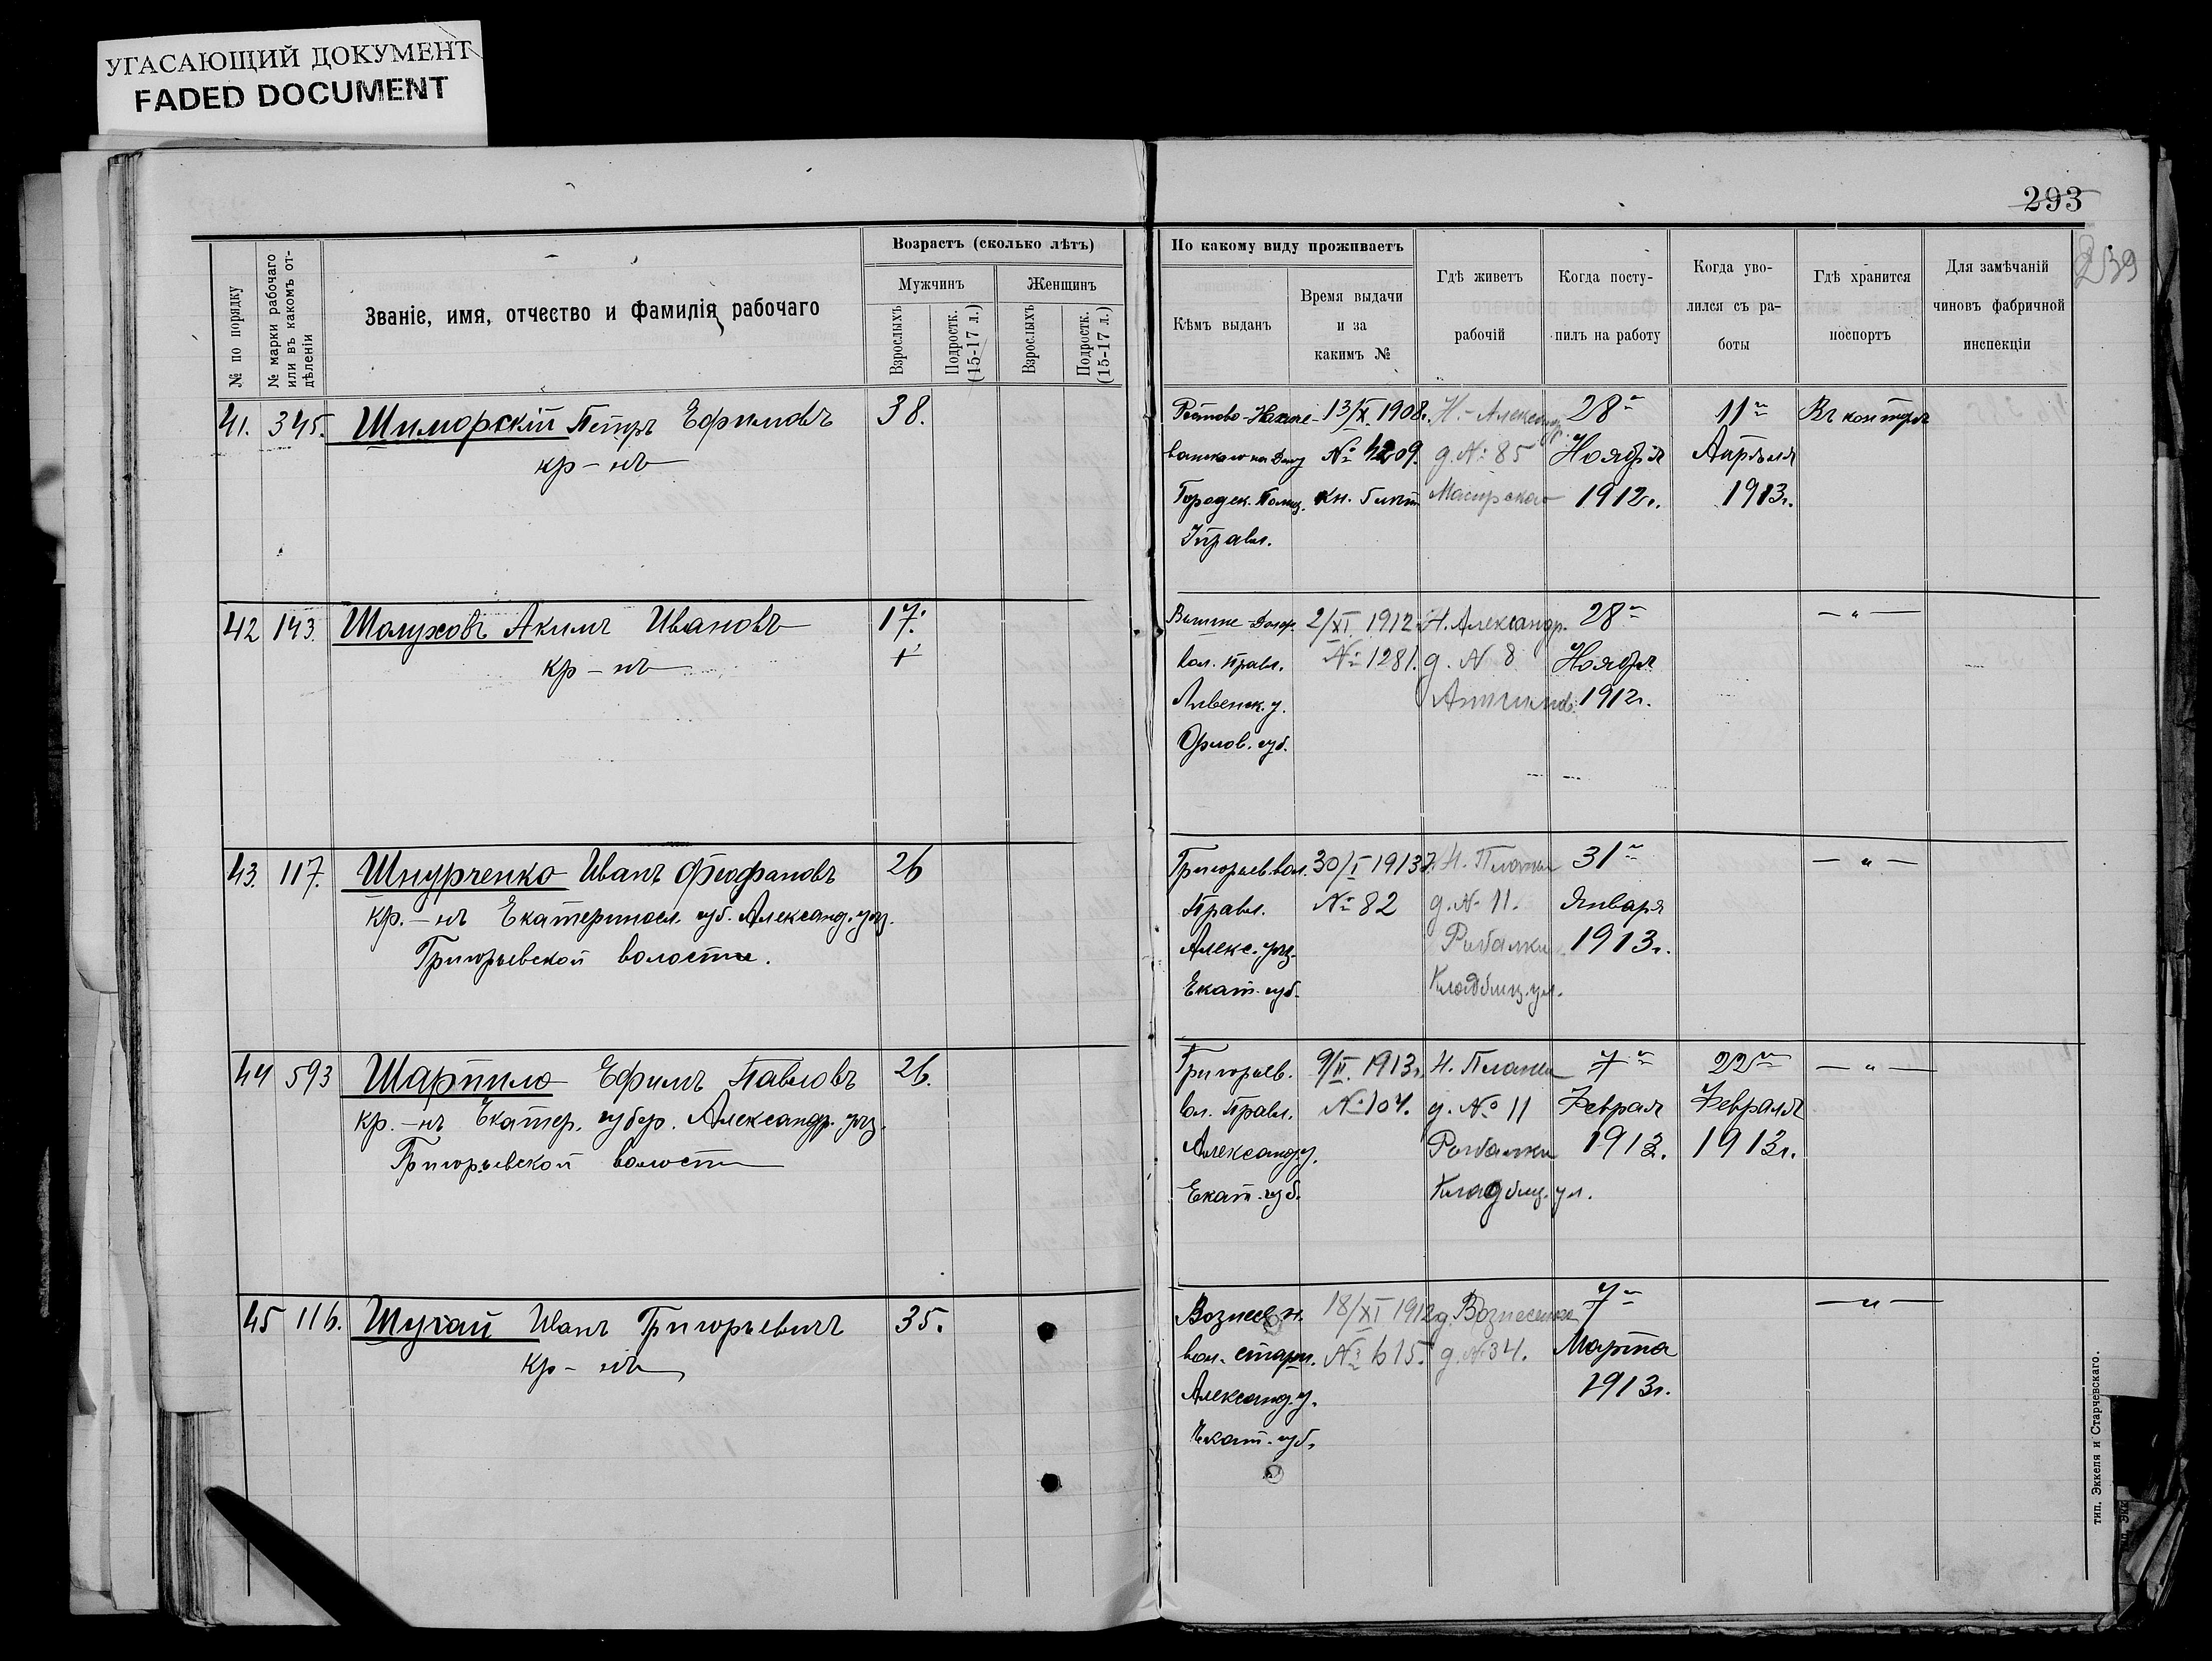 УГАСАЮЩИЙ ДОКУМЕНТ
FADED DOCUMENT
293
239
№ по порядку
№ марки рабочаго или въ какомъ отдѣленіи
Званіе, имя, отчество и фамилія рабочаго
Возрастъ (сколько лѣтъ)
Мужчинъ
Женщинъ
Взрослыхъ
Подростк. (15-17 л.)
Взрослыхъ
Подростк. (15-17 л.)
По какому виду проживаетъ
Кѣмъ выданъ
Время выдачи
и за
какимъ №
Гдѣ живетъ
рабочій
Когда посту-
пилъ на работу
Когда уво-
лился съ ра-
боты
Гдѣ хранится
поспортъ
Для замѣчаній
чиновъ фабричной
инспекціи
41. 345. Шиморскій Петръ Ефимовъ 38. 13/X 1908г. Н.-Александр. 28го 11го Въ конторѣ
кр-нъ № 4209. д. №85 Ноября Апрѣля
Городск. Полиц. кн. 1912г. 1913г.
Управл.
42 143. Шолуховъ Акимъ Ивановъ 17. 2/XI 1912 Н. Александр. 28го — " —
кр-нъ + вол. правл. № 1281. д. № 8 Ноября
Ливенск. у. 1912г.
Орлов. губ.
43. 117. Шнурченко Иванъ Феофановъ 26 Григорьев. вол. 30/I 1913г. Н. Планы 31го — " —
кр.-нъ Екатеринсл. губ. Александ. уѣз. Правл. № 82 д. № 11. Января
Григорьевской волости. Алекс. уѣз. Рыбалки 1913г.
Екат. губ. Кладбищ. ул.
44 593 Шарпило Ефимъ Павловъ 26. Григорьев. 9/II. 1913г. Н. Планы 7го 22го — " —
кр.-нъ Екатер. губер. Александр. уѣз. вол. Правл. № 104. д. № 11 Февраля Февраля
Григорьевской волости Александ. у. Рыбалки 1913. 1913г.
Екат. губ. Кладбищ. ул.
45 116. Шугай Иванъ Григорьевичъ 35. Вознесен. 18/XI 1912 Вознесенка 7го — " —
кр-нъ вол. старш. № 615. д. №34. Марта
Александ. у. 1913г.
Екат. губ.
тип. Эккеля и Старчевскаго.